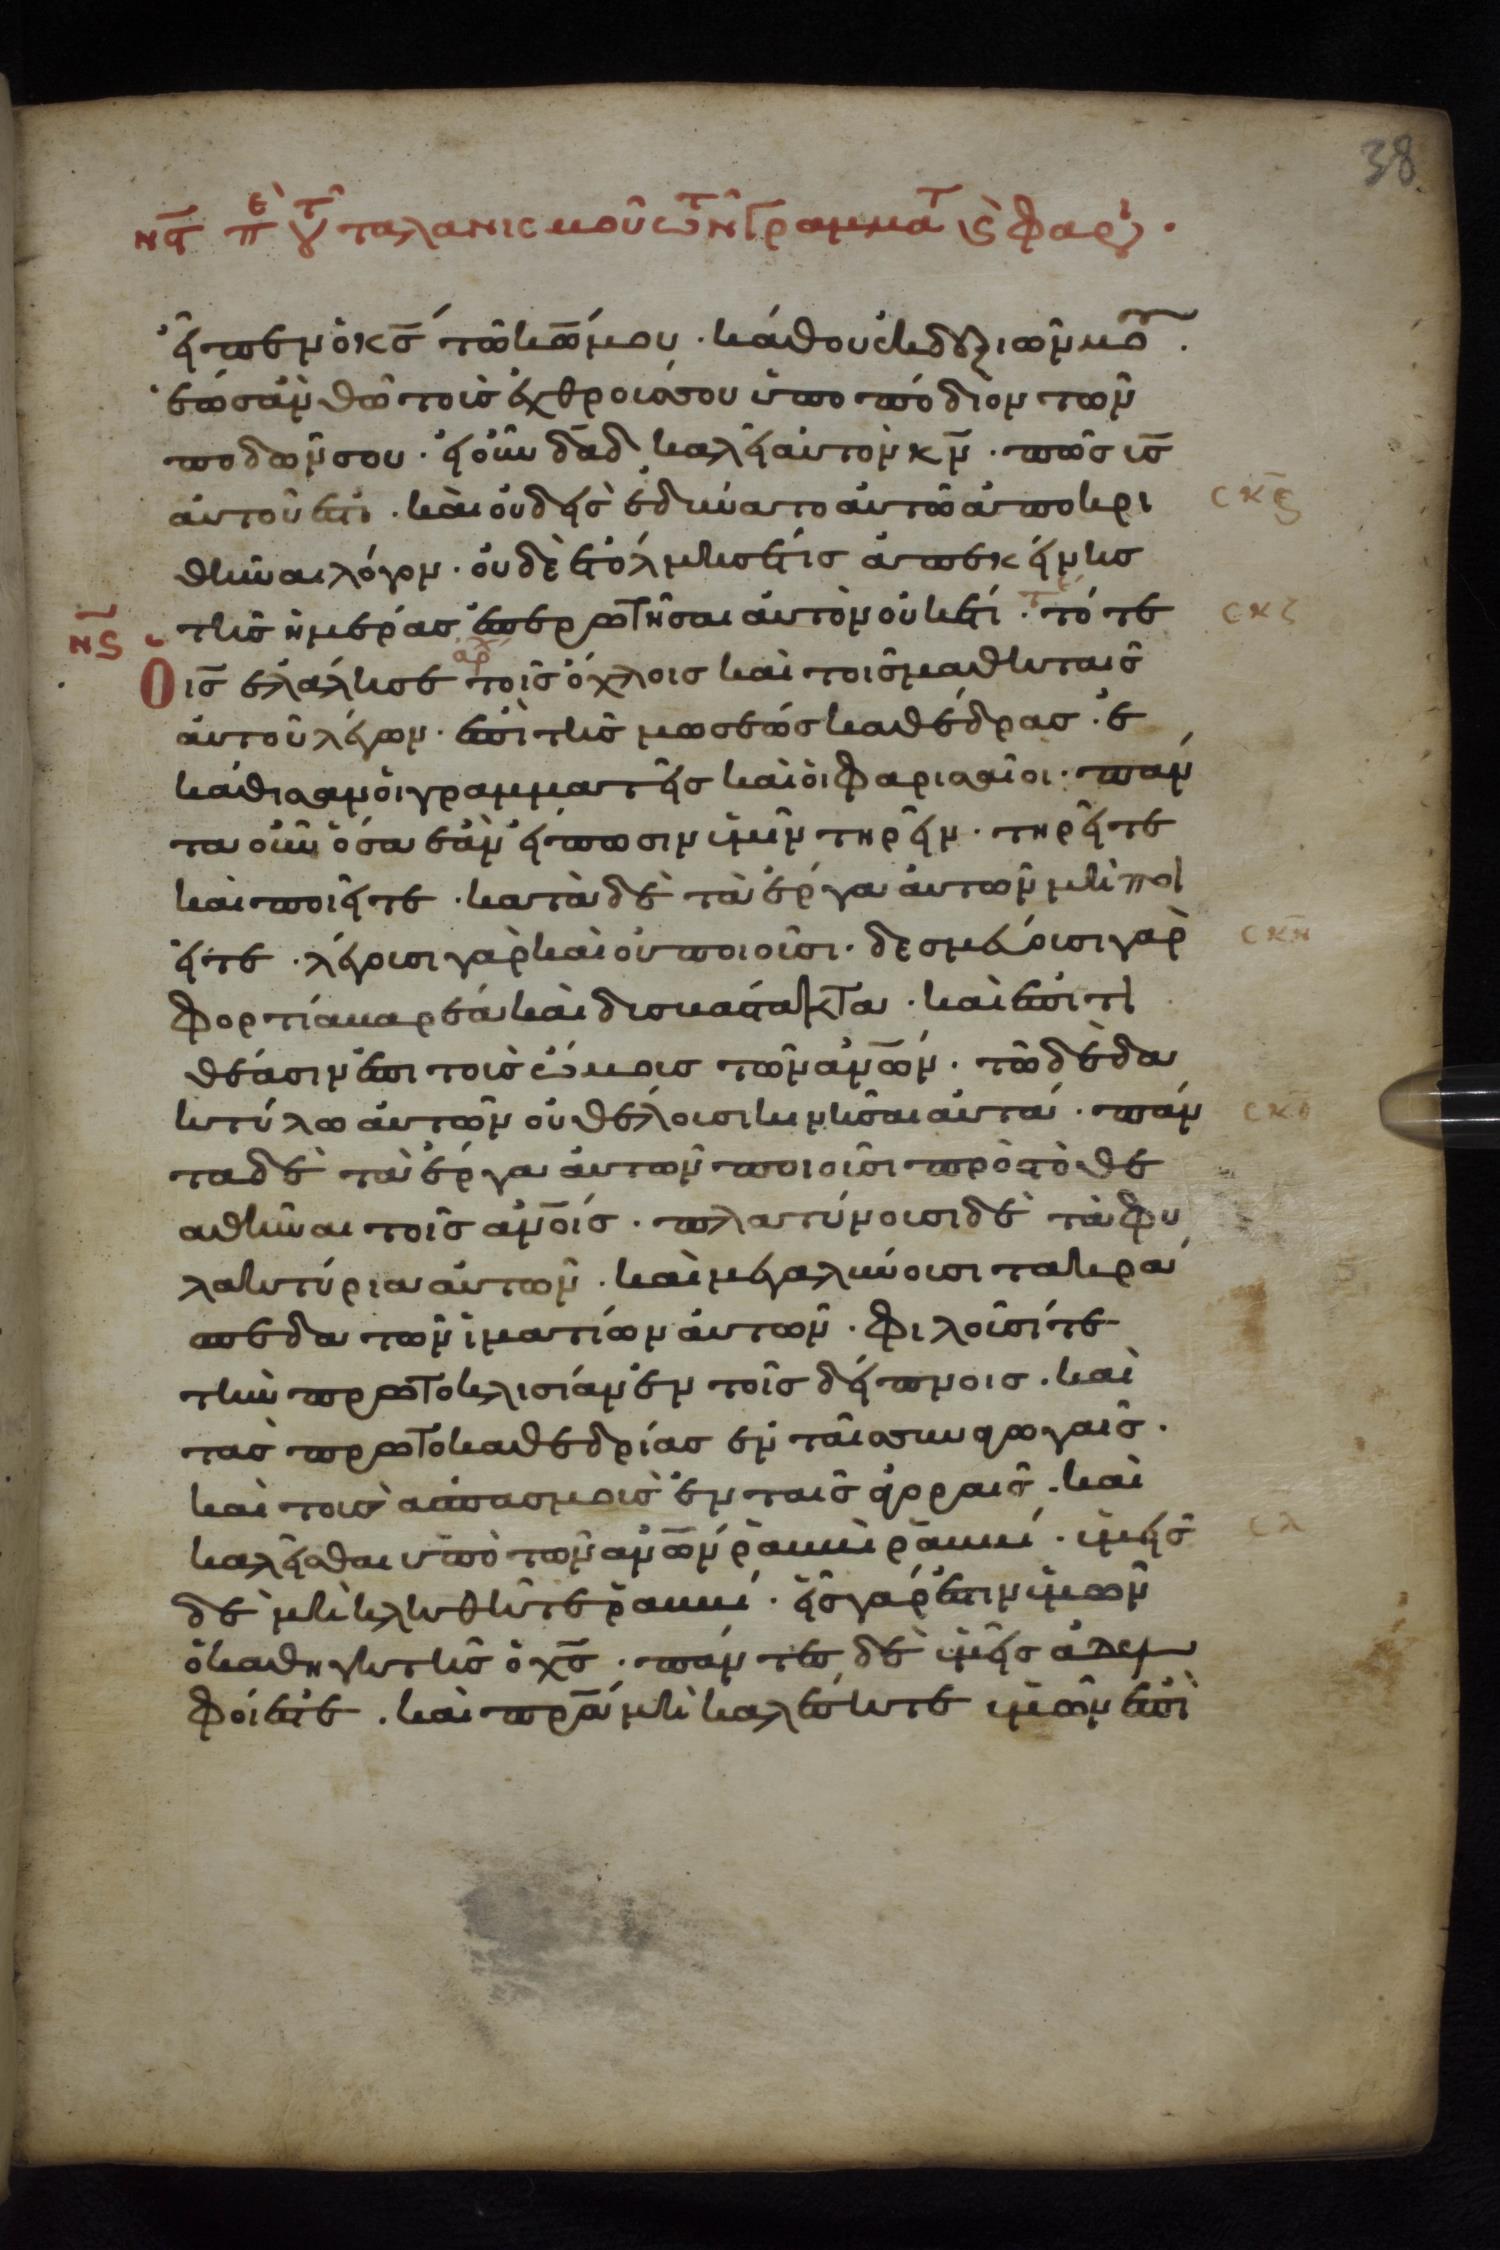 38
νϛ πε τοῦ ταλανισμοῦ τῶν γραμματ καὶ φαρι.
εἶπεν ὁ κ̅ς̅ τῶ κ̅ω̅ μου · κάθου ἐκ δεξιῶν μου ·
ἕως ἂν θῶ τοὺς ἐχθρούς σου ὑποπόδιον τῶν
ποδῶν σου · εἰ οὖν δ̅α̅δ̅ καλεῖ αὐτὸν κ̅ν̅ · πῶς υ̅ς̅
αὐτοῦ ἐστι · καὶ οὐδεὶς ἐδύνατο αὐτῶ ἀποκρι
σκϛ
θῆναι λόγον · οὐδὲ ἐτόλμησέ τις ἀπ ἐκείνης
τῆς ἡμέρας ἐπερωτῆσαι αὐτὸν οὐκέτι · τότε
τε
σκζ
νϛ
ὁ ι̅ς̅ ἐλάλησε τοῖς ὄχλοις καὶ τοῖς μαθηταῖς
αρχ
αὐτοῦ λέγων · ἐπὶ τῆς μωσέως καθέδρας ἐ
κάθισαν οἱ γραμματεῖς καὶ οἱ φαρισαῖοι · πάν
τα οὖν ὅσα ἐὰν εἴπωσιν ὑμῖν τηρεῖν · τηρεῖτε
καὶ ποιεῖτε · κατὰ δὲ τὰ ἔργα αὐτῶν μὴ ποι
εῖτε · λέγουσι γὰρ καὶ οὐ ποιοῦσι · δεσμεύουσι γὰρ
σκη
φορτία βαρέα καὶ δυσβάστακτα · καὶ ἐπιτι
θέασιν ἐπὶ τοὺς ὤμους τῶν α̅ν̅ω̅ν̅ · τῶ δὲ δα
κτύλω αὐτῶν οὐ θέλουσι κινῆσαι αὐτά · πάν
σκθ
τα δὲ τὰ ἔργα αὐτῶν ποιοῦσι πρὸς τὸ θε
αθῆναι τοῖς α̅ν̅οις · πλατύνουσι δὲ τὰ φυ
λακτήρια αὐτῶν · καὶ μεγαλύνουσι τὰ κρά
σπεδα τῶν ἱματίων αὐτῶν · φιλοῦσί τε
τὴν πρωτοκλισίαν ἐν τοῖς δείπνοις · καὶ
τὰς πρωτοκαθεδρίας ἐν ταῖς συναγωγαῖς ·
καὶ τοὺς ἀσπασμοὺς ἐν ταῖς ἀγοραῖς · καὶ
καλεῖσθαι ὑπὸ τῶν α̅ν̅ω̅ν̅ ῥαββὶ ῥαββί · ὑμεῖς
σλ
δὲ μὴ κληθῆτε ῥαββί · εἷς γάρ ἐστιν ὑμῶν
ὁ καθηγητὴς ὁ χ̅ς̅ · πάντες δὲ ὑμεῖς ἀδελ
φοί ἐστε · καὶ π̅ρ̅α̅ μὴ καλέσητε ὑμῶν ἐπὶ